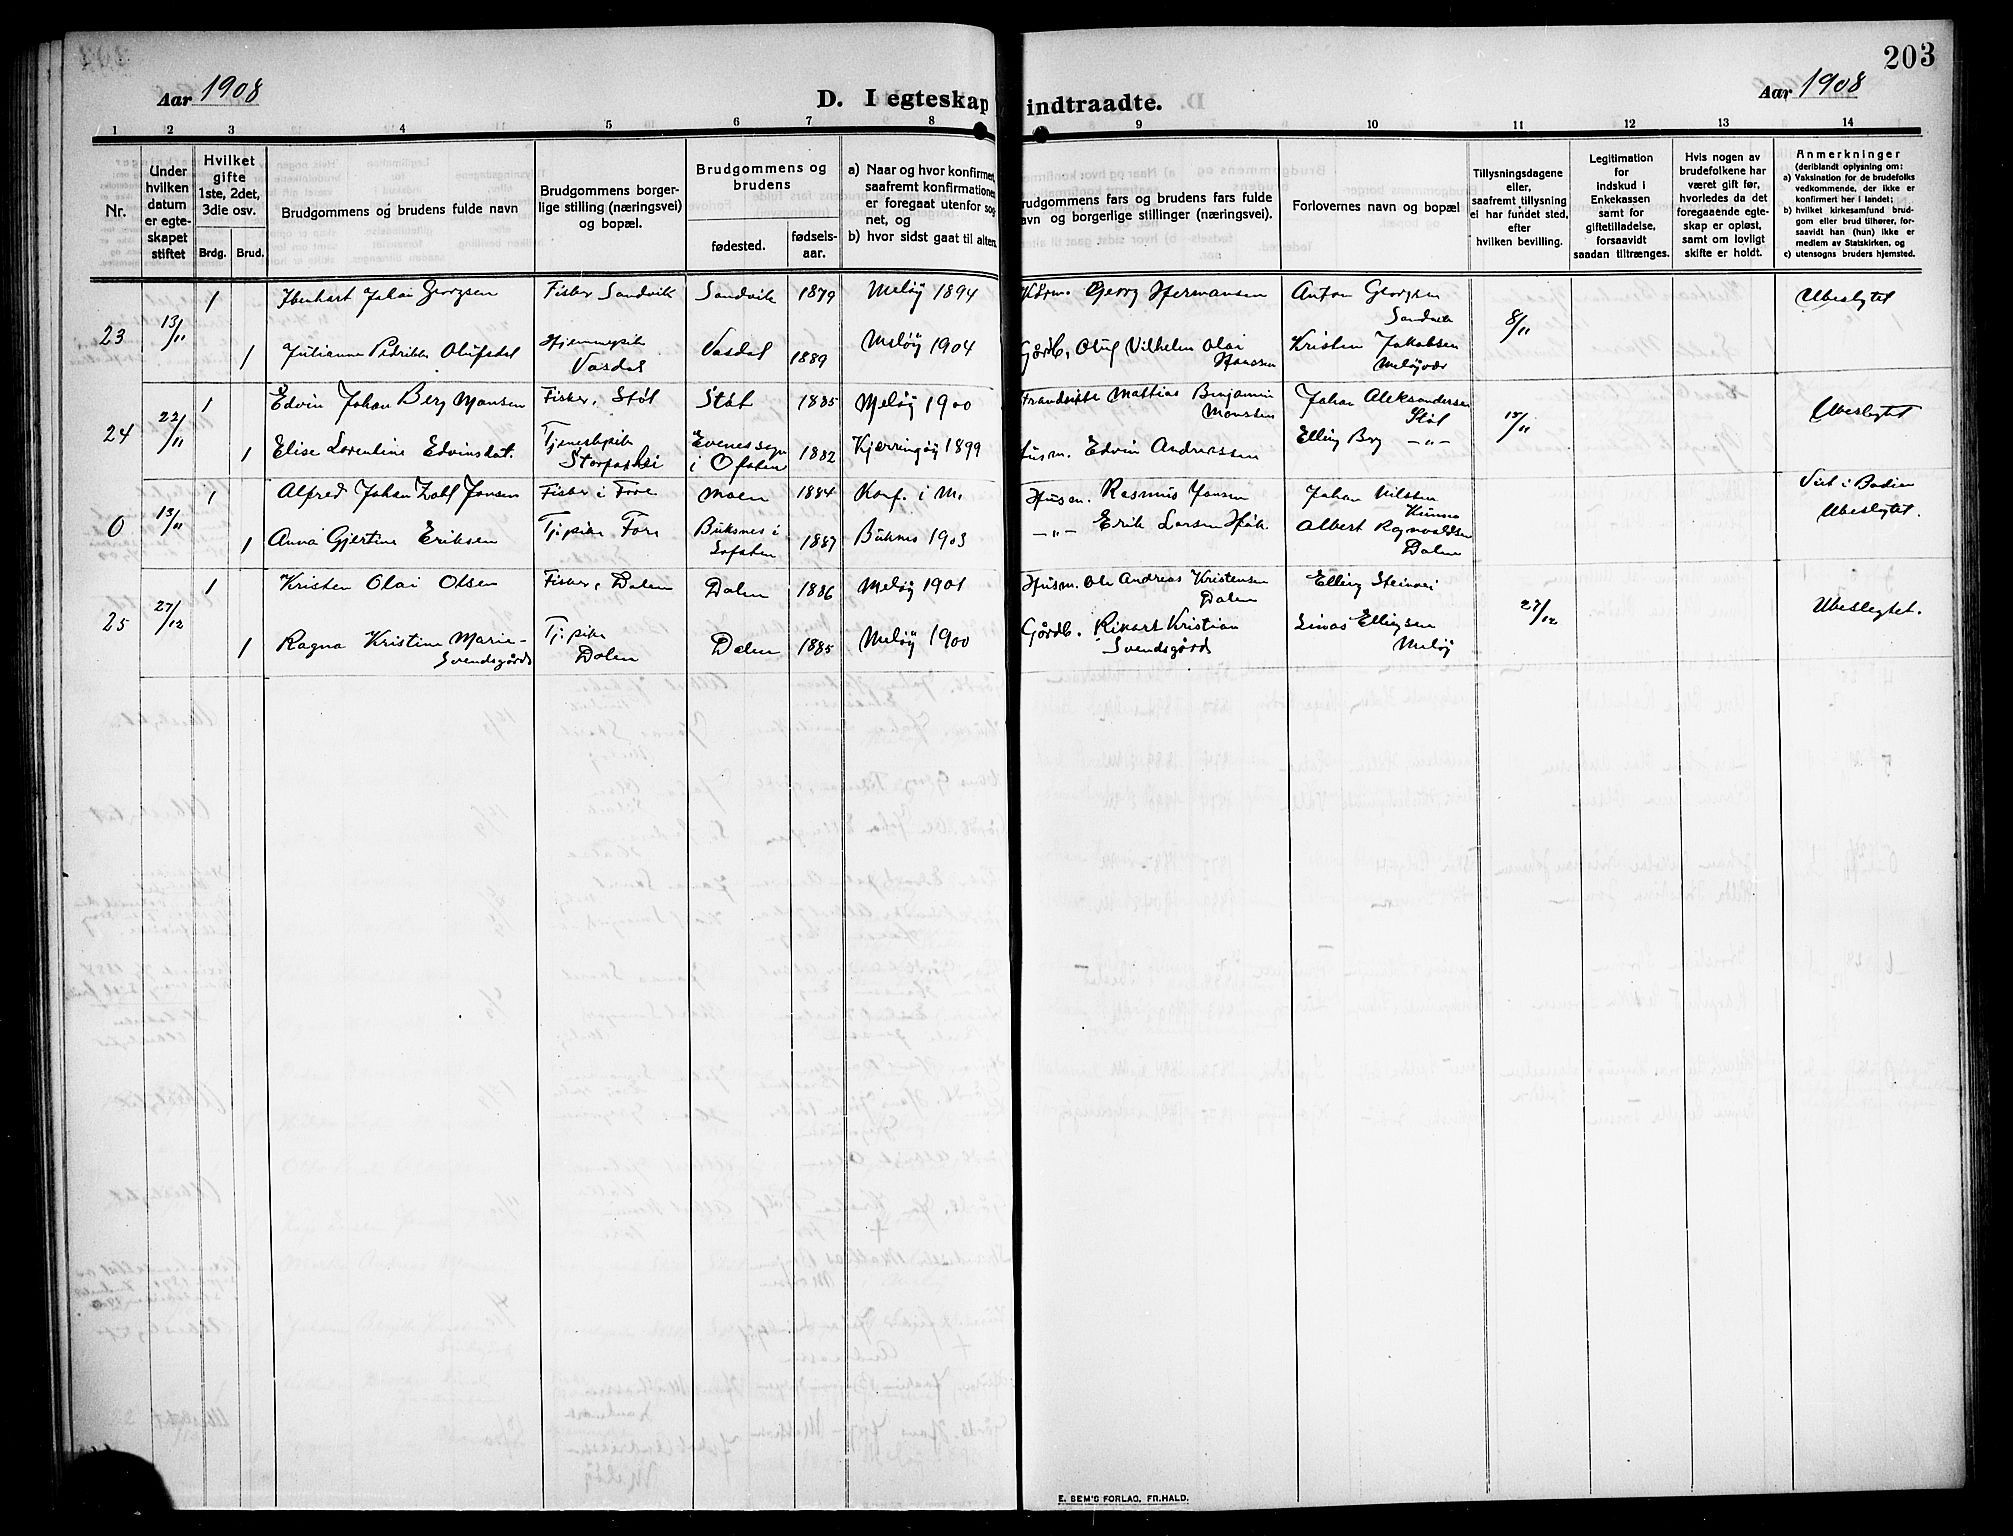 203
Aar 1908
D. I egteskap indtraadte.
Aar 1908
1 2 3 4 5 6 7 8 9 10 11 12 13 14
Nr.
Under hvilken datum er egteskapet stiftet
Hvilket gifte 1ste, 2det, 3die osv.
Brdg. Brud.
Brudgommens og brudens fulde navn
Brudgommens borgerlige stilling (næringsvei) og bopæl.
Brudgommens og brudens
fødested.
fødselsaar.
a) Naar og hvor konfirmert, saafremt konfirmationen er foregaat utenfor sognet, og
b) hvor sidst gaat til alters
Brudgommens fars og brudens fars fulde navn og borgerlige stillinger (næringsvei).
Forlovernes navn og bopæl
Tillysningsdagene eller, saafremt tillysning ei har fundet sted, efter hvilken bevilling.
Legitimation for indskud i Enkekassen samt for giftetilladelse, forsaavidt saadan tiltrænges.
Hvis nogen av brudefolkene har været gift før, hvorledes da det foregaaende egteskap er opløst, samt om lovligt skifte er holdt.
Anmerkninger
(deriblandt oplysning om:
a) Vaksination for de brudefolks vedkommende, der ikke er konfirmert her i landet;
b) hvilket kirkesamfund brudgom eller brud tilhører, forsaavidt han (hun) ikke er medlem av Statskirken, og
c) utensogns bruders hjemsted.
23 13/11 1 Johan Georgsen Fisker Sandvik Sandvik 1879 Meløy 1894 Georg Hermansen Anton Georgsen Sandvik 8/11 Ubeslegtet
1 Julianne Olufsdat Hjemmepike Vasdal Vasdal 1889 Meløy 1904 Gårdb. Oluf Vilhelm Olai Hansen Kristen Jakobsen Meløyvær
24 22/11 1 Edvin Johan Berg Monsen Fisker, Støt Støt 1885 Meløy 1900 Mattias Benjamin Monsen Johan Aleksandersen Støt 15/11 Ubeslegtet
1 Elise Lorentine Edvinsdat. Tjenestepike Evenes sogn i Ofoten 1882 Kjærringøy 1899 Husm. Edvin Andreassen Elling Berg —„—
0 13/11 1 Alfred Johan Jensen Fisker i Fore Moen 1884 Konf. i M. Husm. Rasmus Jensen Johan Nilsen Kunna Viet i Bodin
1 Anna Gjertine Eriksen Tj.pike Fore Buksnes i Lofoten 1887 Buksnes 1903 —„— Erik Larsen Albert Ragnvaldsen Dalen Ubeslegtet.
25 27/12 1 Kristen Olai Olsen Fisker, Dalen Dalen 1886 Meløy 1901 Husm. Ole Andreas Kristensen Dalen Elling Steinvei 27/12 Ubeslegtet.
1 Ragna Kristine Marie Svendsgård Tj.pike Dalen Dalen 1885 Meløy 1900 Gårdb. Rikart Kristian Svendsgård Ellingsen Meløy
E. SEM'S FORLAG, FR.HALD.